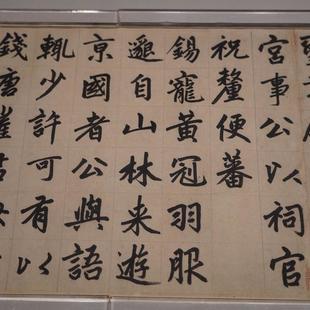 宮事公以祠官
祝釐便蕃
錫寵黃冠羽服
邈自山林来遊
京國者公與語
輒少許可有以
錢唐崔